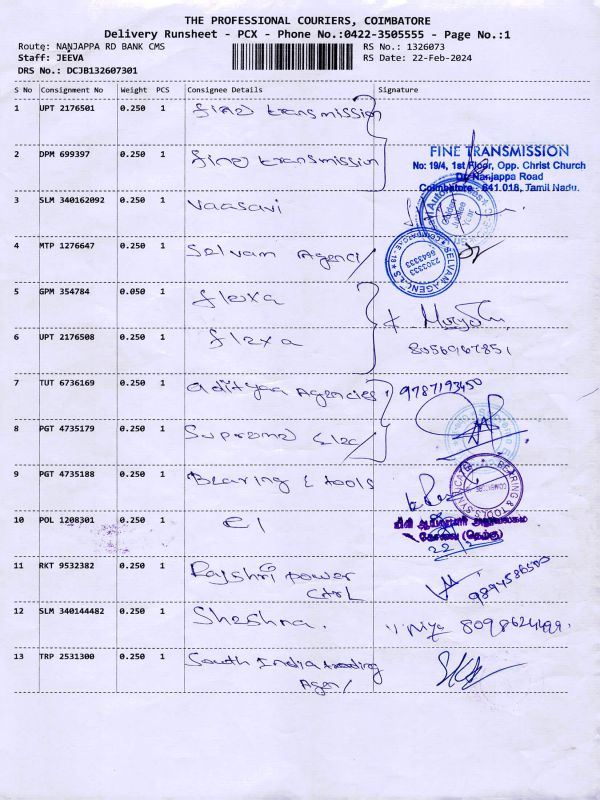 THE PROFESSIONAL COURIERS, COIMBATORE
Delivery Runsheet - PCX - Phone No.:0422-3505555 - Page No.:1
Route: NANJAPPA RD BANK CMS
RS No.: 1326073
Staff: JEEVA
RS Date: 22-Feb-2024
DRS No.: DCJB132607301
S No Consignment No Weight PCS Consignee Details Signature
1 UPT 2176501 0.250 1 fine transmission
2 DPM 699397 0.250 1 fine transmission
FINE TRANSMISSION
No: 19/4, 1st Floor, Opp. Christ Church
Nanjappa Road
Coimbatore - 641 018, Tamil Nadu.
3 SLM 340162092 0.250 1 Vaasavi
Golden Jubilee Year
4 MTP 1276647 0.250 1 Selvam Agenci
SELVAM AGENCIES
COIMBATORE - 18
2303333
5 GPM 354784 0.050 1 flexa
6 UPT 2176508 0.250 1 flexa
8056967851
7 TUT 6736169 0.250 1 adityaa Agencies
9787193450
8 PGT 4735179 0.250 1 Supreme Elec
9 PGT 4735188 0.250 1 Bearing & tools
BEARING & TOOLS SYNDICATE
10 POL 1208301 0.250 1 EI
கோவை (தெற்கு)
11 RKT 9532382 0.250 1 Rajshri power
Ctrl
9894586500
12 SLM 340144482 0.250 1 Sheshna.
13 TRP 2531300 0.250 1 South India trading
Agen